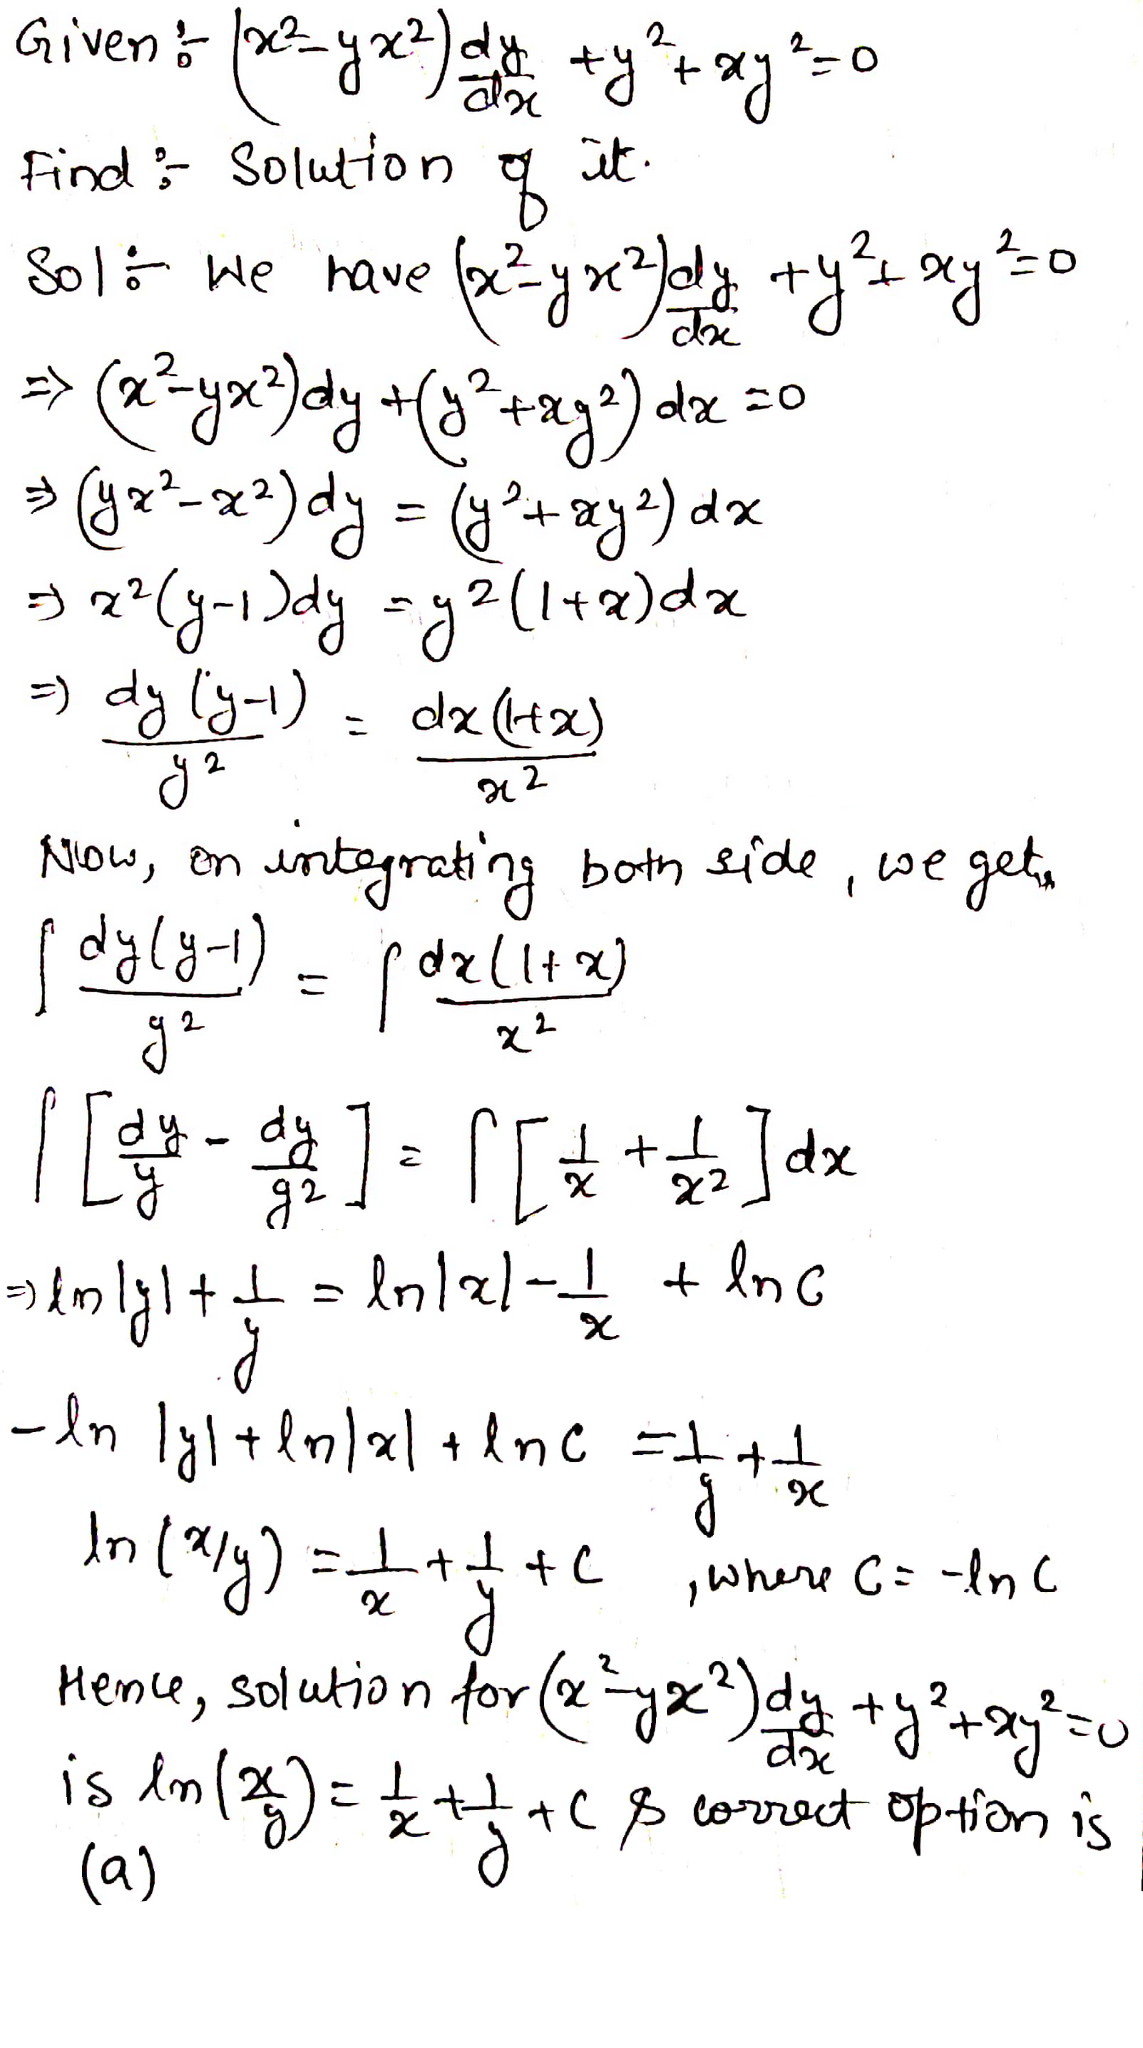 Given :- (x²-yx²) dy/dx + y² + xy² = 0
Find :- Solution of it.
Sol :- We have (x²-yx²) dy/dx + y² + xy² = 0
=> (x²-yx²)dy + (y²+xy²) dx = 0
=> (yx²-x²) dy = (y²+xy²) dx
=> x²(y-1)dy = y²(1+x)dx
=> dy(y-1)/y² = dx(1+x)/x²
Now, on integrating both side, we get,
∫ dy(y-1)/y² = ∫ dx(1+x)/x²
∫ [dy/y - dy/y²] = ∫ [1/x + 1/x²] dx
=> ln|y| + 1/y = ln|x| - 1/x + ln C
-ln |y| + ln|x| + ln C = 1/y + 1/x
ln (x/y) = 1/x + 1/y + C , where C = -ln C
Hence, solution for (x²-yx²) dy/dx + y² + xy² = 0
is ln(x/y) = 1/x + 1/y + C & correct option is
(a)